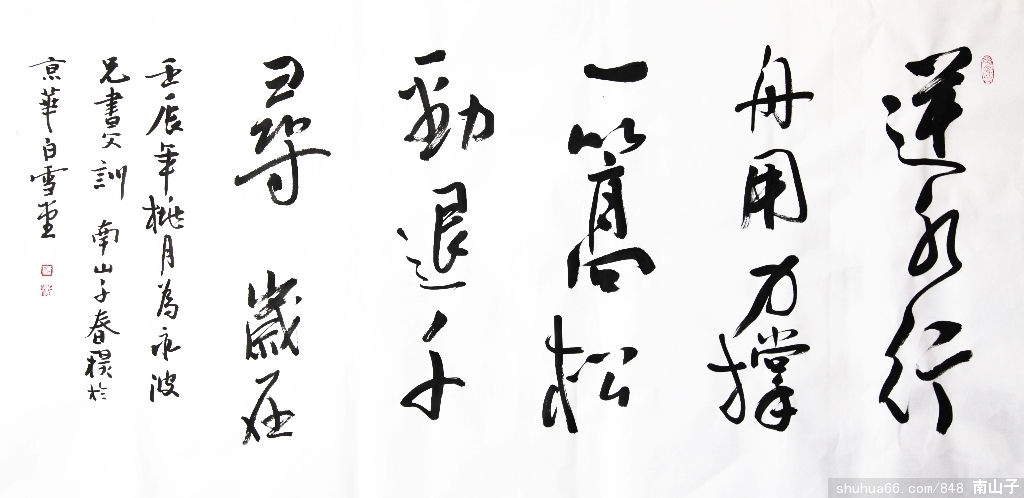 逆水行
舟用力撑
一篙松
勁退千
尋 歲在
壬辰年桃月為永波
兄書父訓 南山子春祺於
京華白雪堂
shuhua66.com/848 南山子